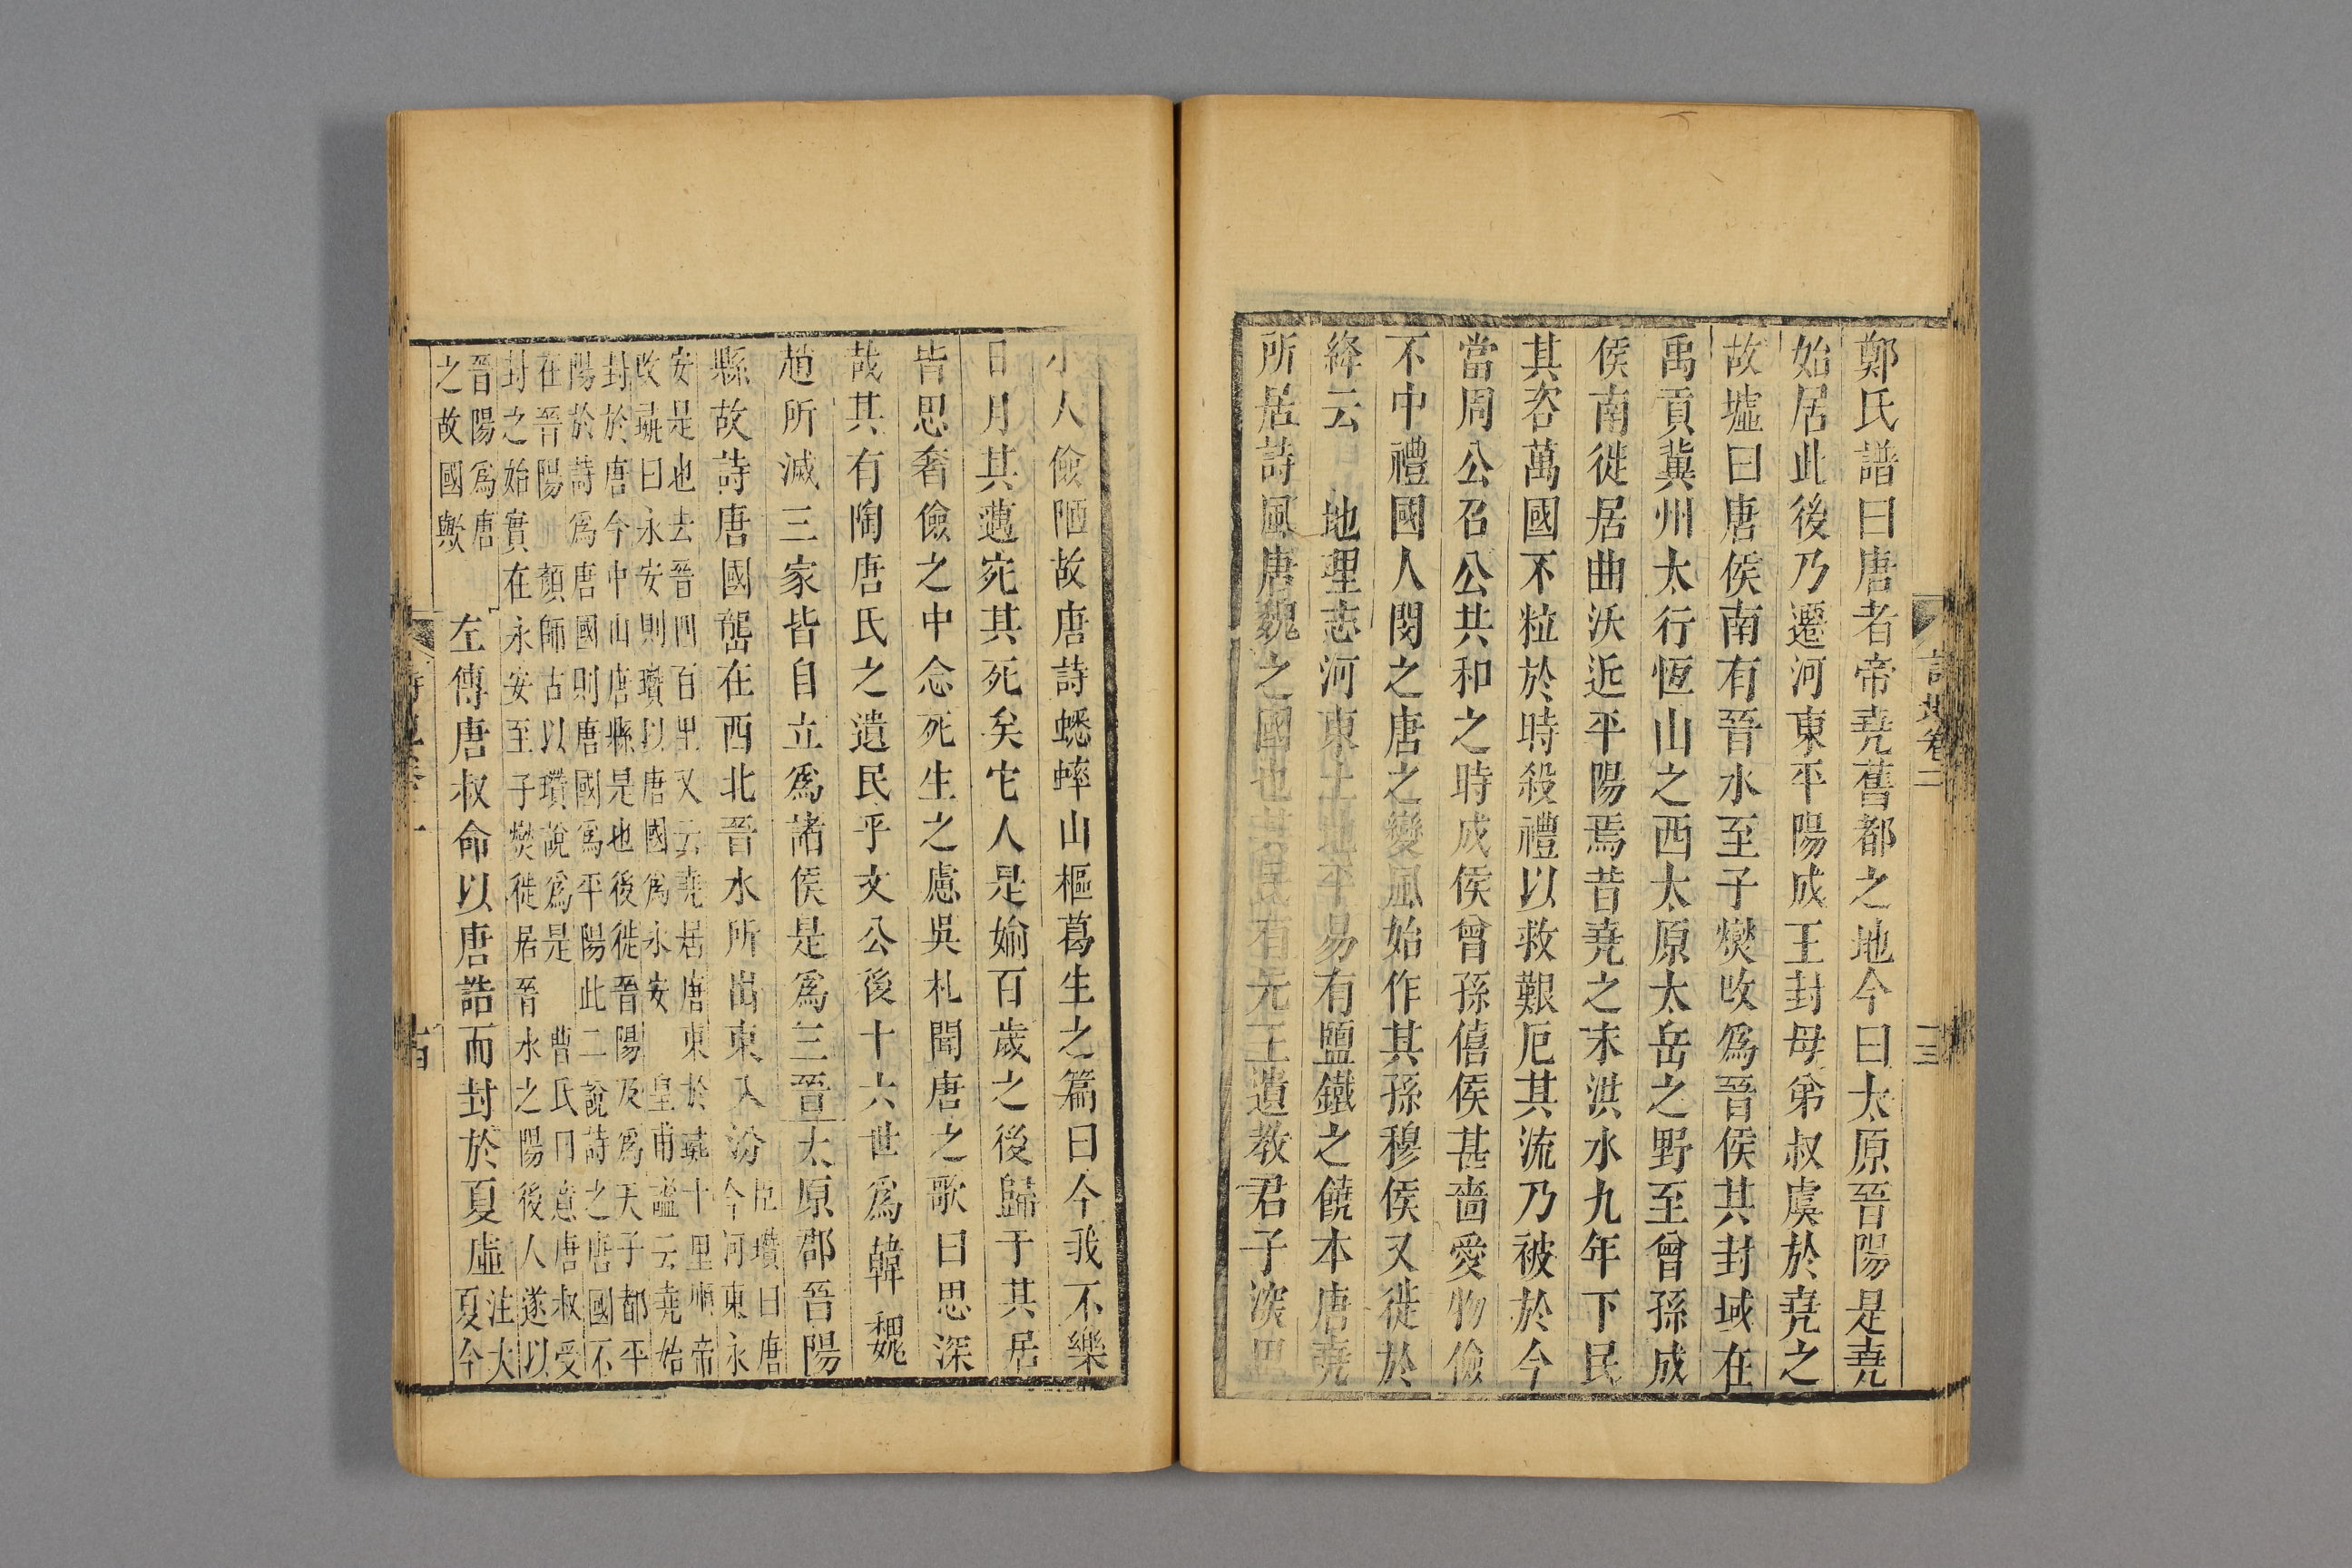 詩地卷二
鄭氏譜曰唐者帝堯舊都之地今曰太原晉陽是堯
始居此後乃遷河東平陽成王封母弟叔虞於堯之
故墟曰唐侯南有晉水至子燮改為晉侯其封域在
禹貢冀州太行恆山之西太原太岳之野至曾孫成
侯南徙居曲沃近平陽焉昔堯之末洪水九年下民
其咨萬國不粒於時殺禮以救艱厄其流乃被於今
當周公召公共和之時成侯曾孫僖侯甚嗇愛物儉
不中禮國人閔之唐之變風始作其孫穆侯又徙於
絳云 地理志河東土地平易有鹽鐵之饒本唐堯
所居詩風唐魏之國也其民有先王遺教君子深思
小人儉陋故唐詩蟋蟀山樞葛生之篇曰今我不樂
日月其邁宛其死矣它人是媮百歲之後歸于其居
皆思奢儉之中念死生之慮吳札聞唐之歌曰思深
哉其有陶唐氏之遺民乎文公後十六世為韓魏
趙所滅三家皆自立為諸侯是為三晉太原郡晉陽
縣故詩唐國龍山在西北晉水所出東入汾
臣瓚曰唐
今河東永
安是也去晉四百里又云堯居唐東於彘十里順帝
改彘曰永安則瓚以唐國為永安 皇甫謐云堯始
封於唐今中山唐縣是也後徙晉陽及為天子都平
陽於詩為唐國則唐國為平陽此二說詩之唐國不
在晉陽 顏師古以瓚說為是 曹氏曰意唐叔受
封之始實在永安至子燮徙居晉水之陽後人遂以
晉陽為唐
之故國歟
左傳唐叔命以唐誥而封於夏虛
注大
夏今